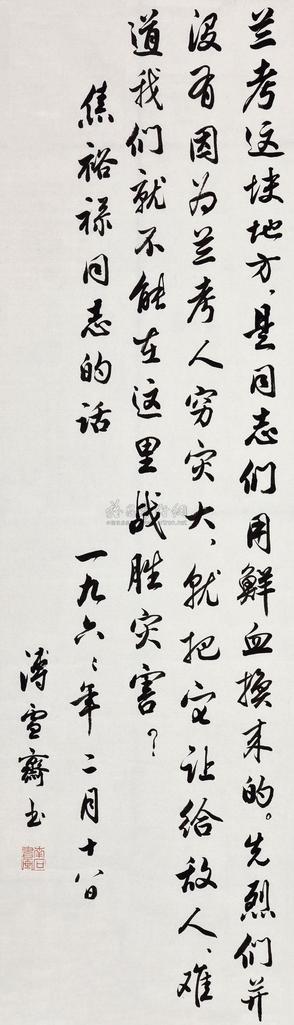 兰考这块地方、是同志们用鲜血换来的。先烈们并
没有因为兰考人穷灾大、就把它让给敌人、难
道我们就不能在这里战胜灾害？
焦裕禄同志的话
一九六六年二月十八日
溥雪斋书